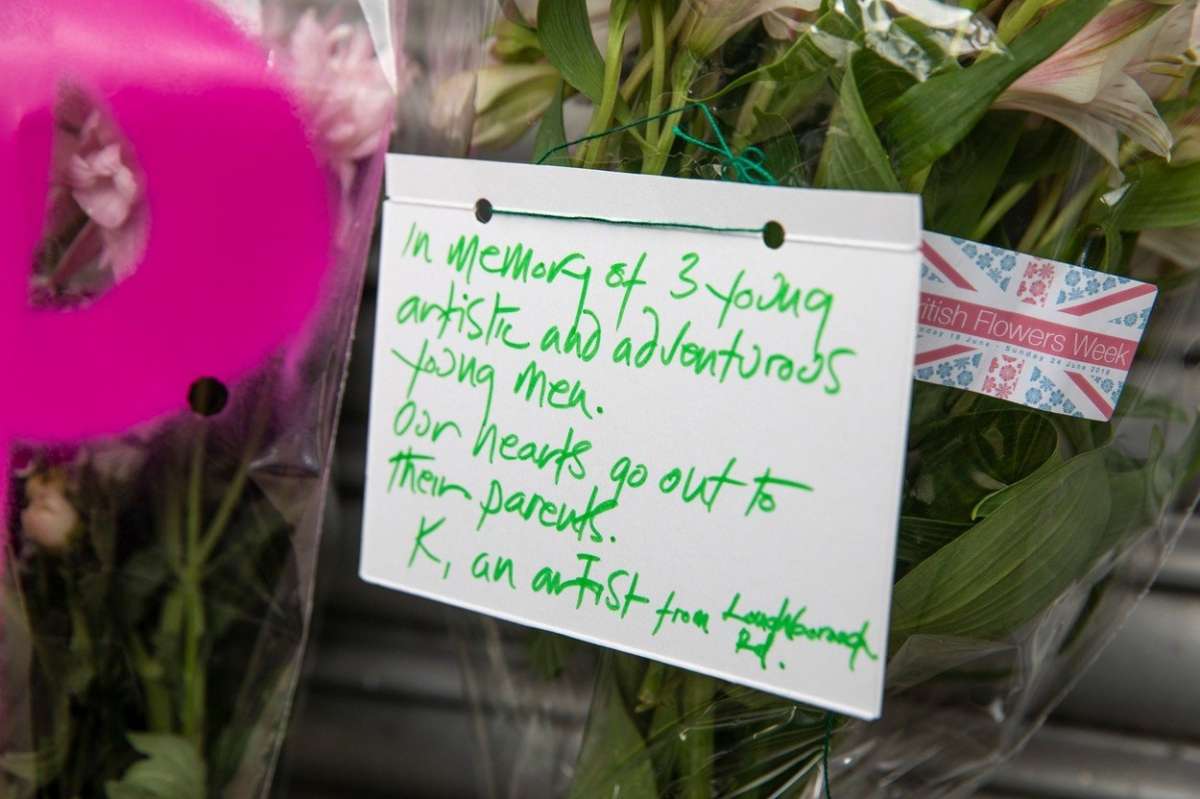 In memory of 3 young
artistic and adventurous
young men.
Our hearts go out to
their parents.
K, an artist from Loughborough
Rd.
ritish Flowers Week
day 18 June - Sunday 24 June 2018